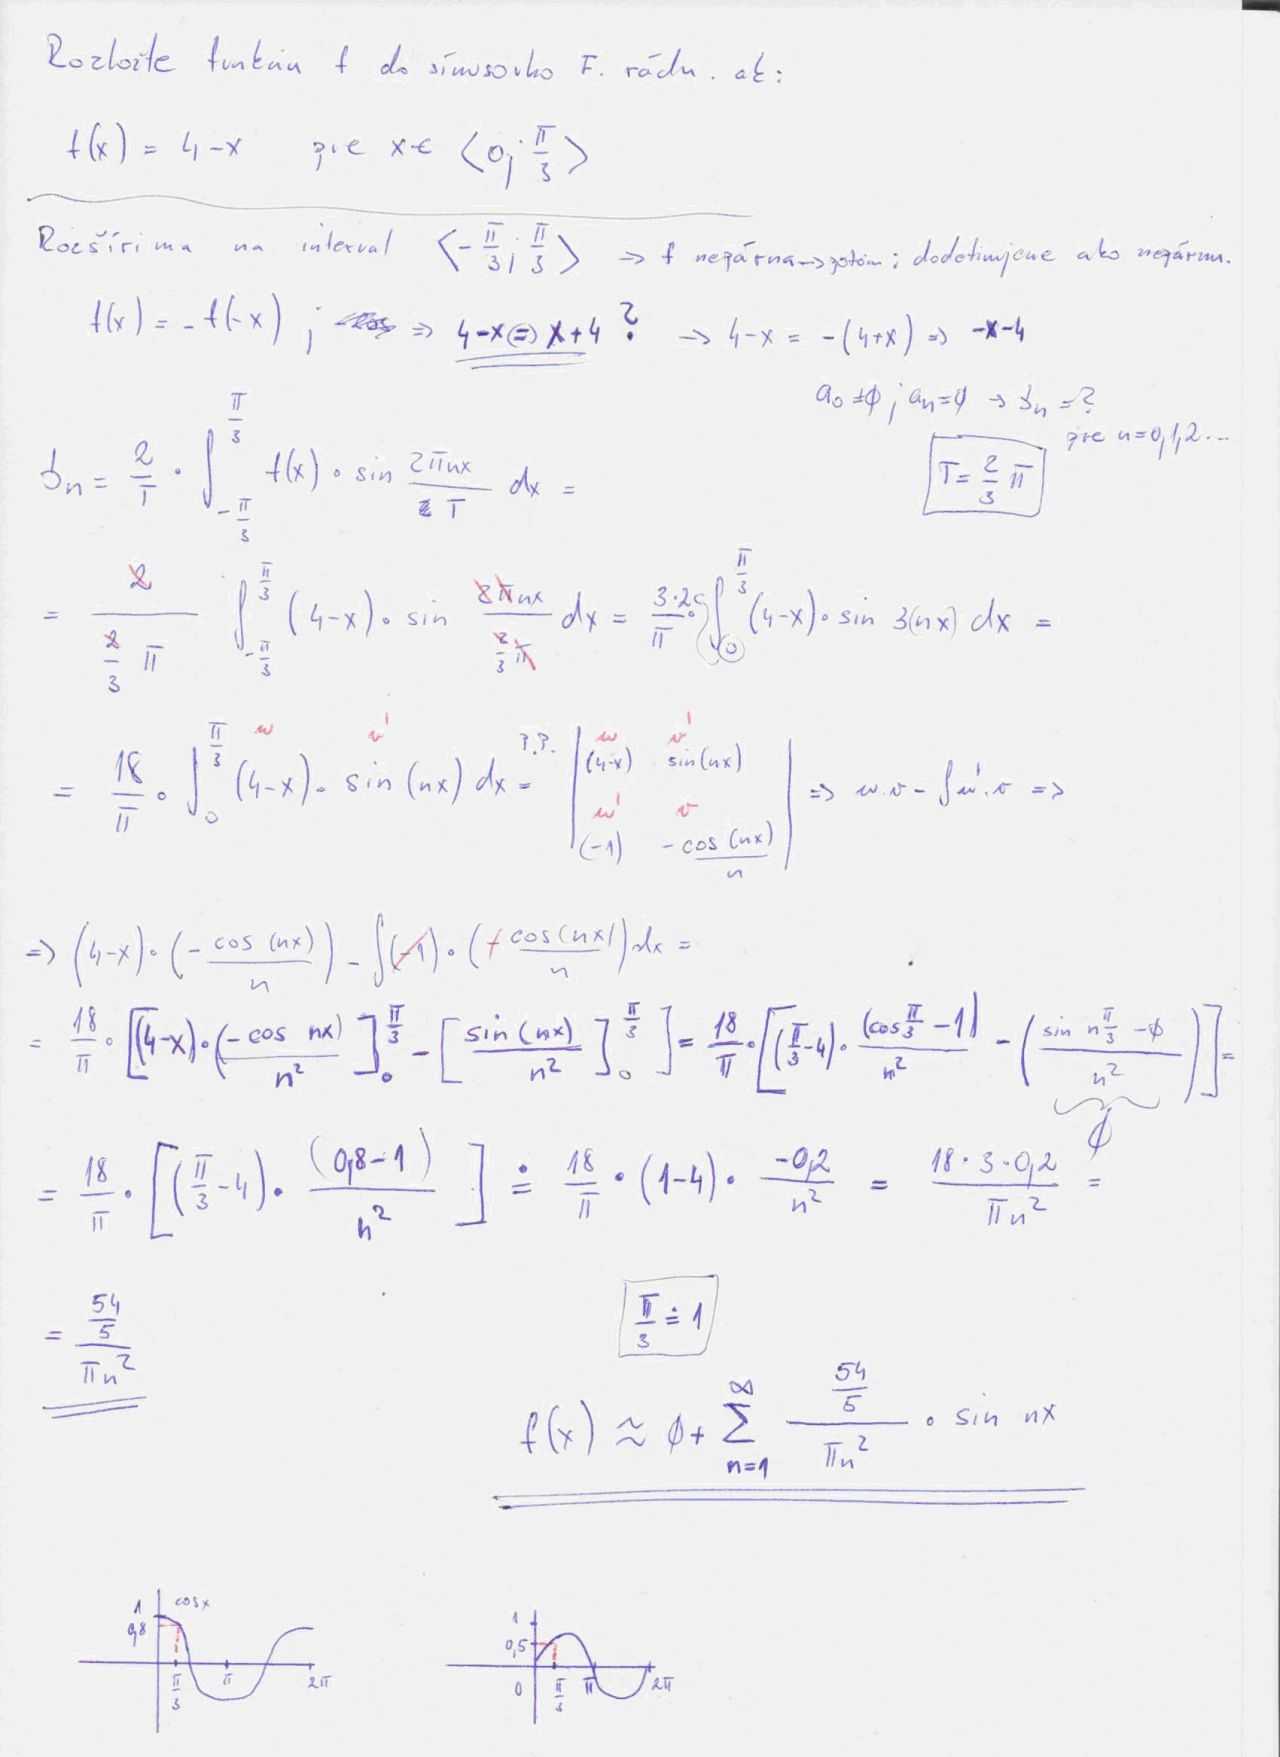 Rozložte funkciu f do sínusovho F. rádu. ak:
f(x) = 4-x pre x∈ ⟨0; π/3⟩
Rozšírima na interval ⟨-π/3; π/3⟩ → f nepárna → potom; dodefinujeme ako nepárnu.
f(x) = -f(-x) ; ⇒ 4-x = x+4 ? → 4-x = -(4+x) ⇒ -x-4
a₀=∅; aₙ=∅ → bₙ=?
pre n=0,1,2...
T = 2/3 π
bₙ = 2/T · ∫_{-π/3}^{π/3} f(x) · sin 2πnx/T dx =
= 2/(2/3 π) ∫_{-π/3}^{π/3} (4-x) · sin 2πnx/(2/3 π) dx = 3·2/π · ∫_0^{π/3} (4-x) · sin 3(nx) dx =
= 18/π · ∫_0^{π/3} (4-x) · sin (nx) dx = | u (4-x) v' sin(nx) u' (-1) v -cos(nx)/n | ⇒ u.v - ∫u'.v ⇒
⇒ (4-x) · (- cos(nx)/n) - ∫(-1) · (+ cos(nx)/n) dx =
= 18/π · [[(4-x)·(-cos nx)/n²]_0^{π/3} - [sin(nx)/n²]_0^{π/3}] = 18/π · [(π/3-4) · (cos π/3 -1)/n² - (sin nπ/3 -∅)/n²)] =
∅
= 18/π · [(π/3-4) · (0,8-1)/n²] ≐ 18/π · (1-4) · -0,2/n² = 18·3·0,2/πn² =
= 54/5/πn²
π/3 ≐ 1
f(x) ≈ ∅ + ∑_{n=1}^{∞} 54/5/πn² · sin nx
1 cos x
0,8
π/3 π 2π
1
0,5
0 π/3 π 2π